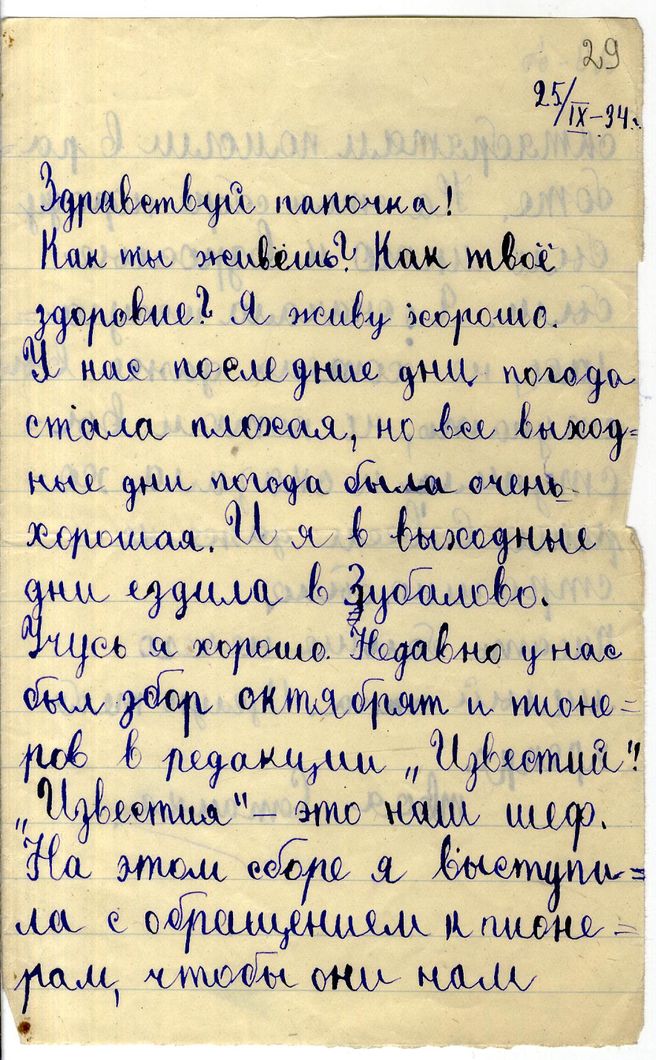 29
25/IX-34г.
Здравствуй папочка!
Как ты живёшь? Как твоё
здоровие? Я живу хорошо.
У нас последние дни погода
стала плохая, но все выход=
ные дни погода была очень
хорошая. И я в выходные
дни ездила в Зубалово.
Учусь я хорошо. Недавно у нас
был збор октябрят и пионе=
ров в редакции „Известий".
„Известия" – это наш шеф.
На этом сборе я выступи=
ла с обращением к пионе=
рам, чтобы они нам